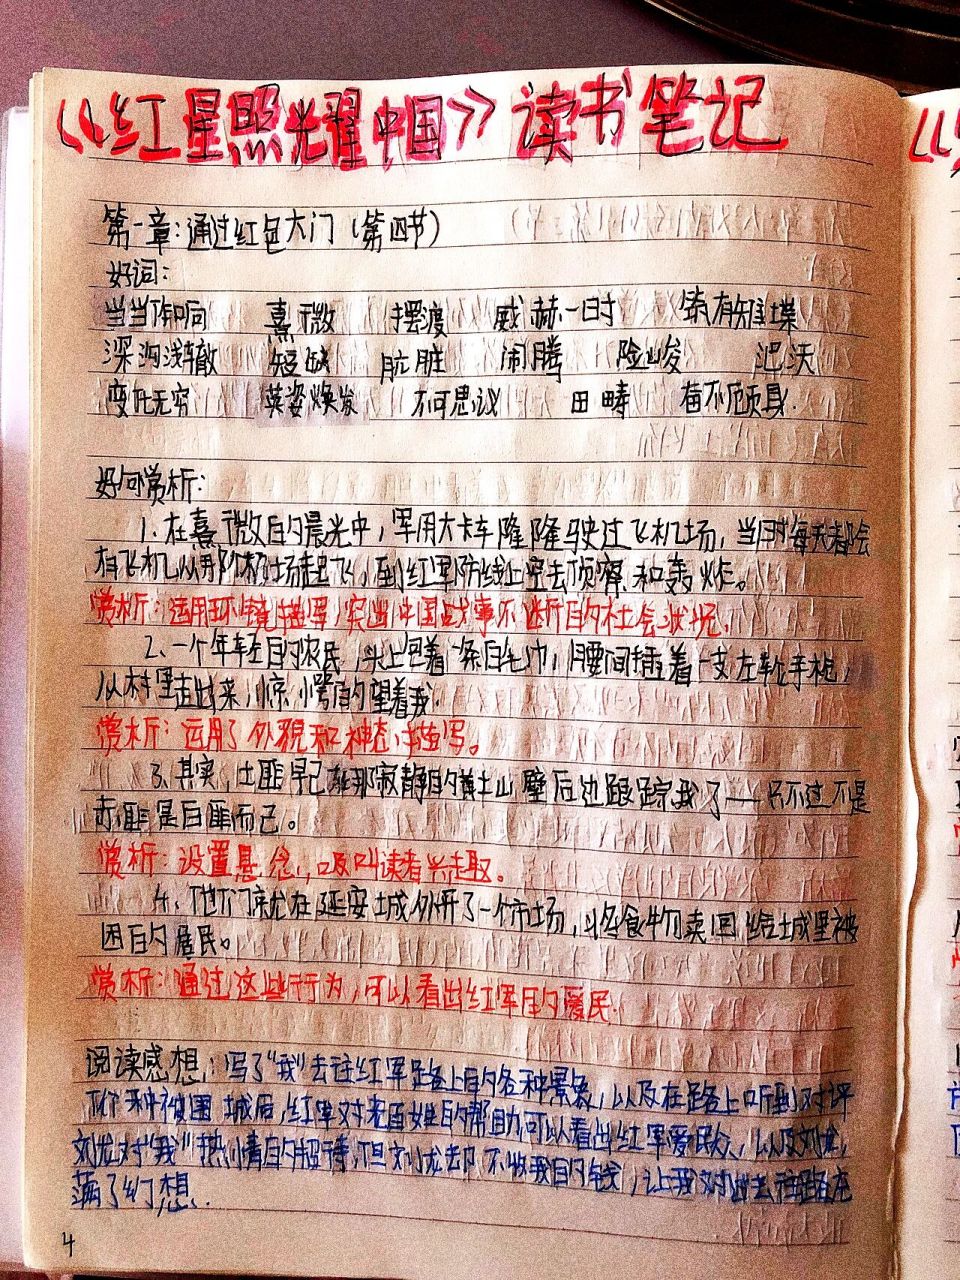 《红星照耀中国》读书笔记
第一章:通过红色大门(第四节)
好词:
当当作响 熹微 摆渡 威赫一时 锯齿雉堞
深沟浅辙 短缺 肮脏 闹腾 险峻 肥沃
变化无穷 英姿焕发 不可思议 田畴 奋不顾身.
好句赏析:
1、在熹微的晨光中,军用大卡车隆隆驶过飞机场,当时每天都会
有飞机从那机场起飞,到红军防线上空去侦察和轰炸。
赏析:运用环境描写,突出中国战事不断的社会状况.
2、一个年轻的农民,头上包着一条白毛巾,腰间插着一支左轮手枪,
从村里走出来,惊愕的望着我.
赏析:运用了外貌和神态描写。
3、其实,土匪早已在那寂静的黄土山壁后边跟踪我了——只不过不是
赤匪是白匪而已。
赏析:设置悬念,吸引读者兴趣。
4、他们就在延安城外开了一个市场,将食物卖回给城里被
困的居民。
赏析:通过这些行为,可以看出红军的爱民.
阅读感想:写了“我”去往红军路上的各种景象,以及在路上听到对
被围城后,红军对老百姓的帮助可以看出红军爱民众,以及刘龙
对“我”热情的招待,但刘龙却不收我的钱,让我对去往路充
满了幻想.
4